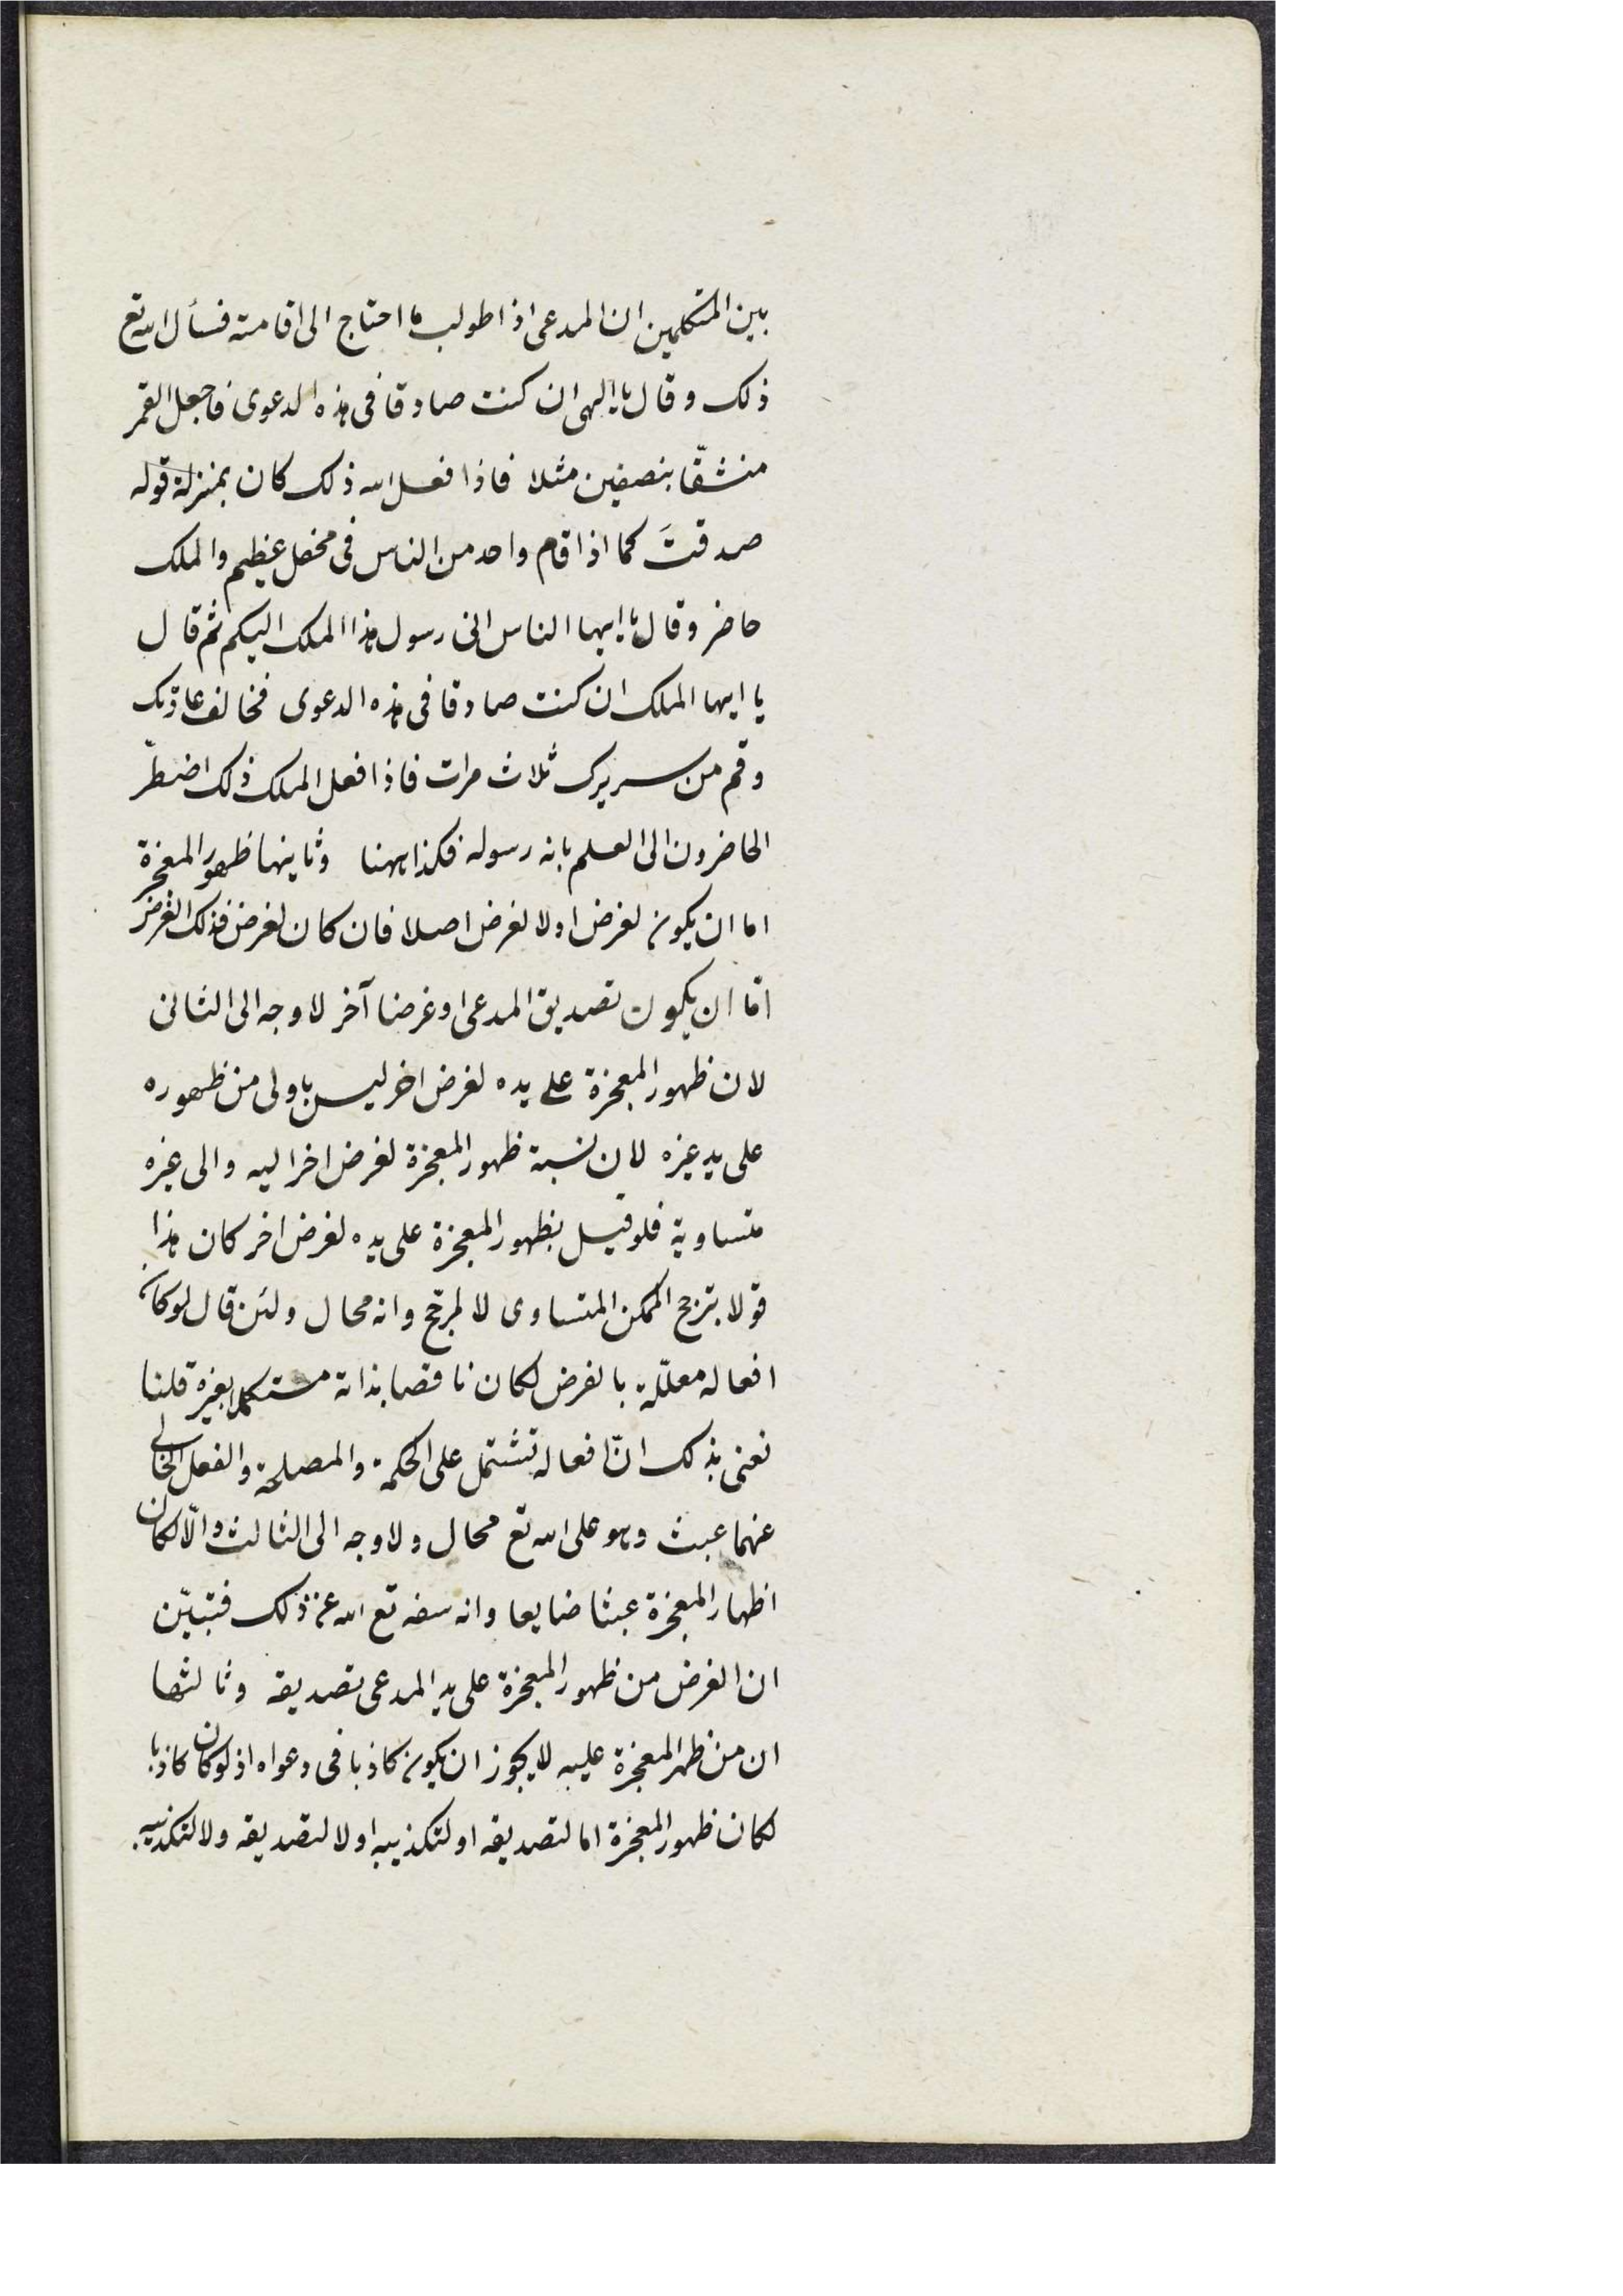 بين المتكلمين ان المدعى اذا طولب ما احتاج الى اقامته فسأل الله تع
ذلك وقال يا الهى ان كنت صادقا فى هذه الدعوى فاجعل القمر
منشقّا بنصفين مثلا فاذا فعل الله ذلك كان بمنزلة قوله
صدقتَ كما اذا قام واحد من الناس فى محفل عظيم والملك
حاضر وقال يا ايها الناس انى رسول هذا الملك اليكم ثم قال
يا ايها الملك ان كنت صادقا فى هذه الدعوى فخالف عادتك
وقم من سريرك ثلاث مرات فاذا فعل الملك ذلك اضطرّ
الحاضرون الى العلم بانه رسوله فكذا ههنا وثانيها ظهور المعجزة
اما ان يكون لغرض اولا لغرض اصلا فان كان لغرض فذلك الغرض
امّا ان يكون تصديق المدعى او غرضا آخر لا وجه الى الثانى
لان ظهور المعجزة على يده لغرض اخر ليس باولى من ظهوره
على يد غيره لان نسبة ظهور المعجزة لغرض اخر اليه والى غيره
متساوية فلو قيل بظهور المعجزة على يده لغرض اخر كان هذا
قولا بترجح الممكن المتساوى لا لمرجّح وانه محال ولئن قال لو كان
افعاله معلّلة بالغرض لكان ناقصا بذاته مستكملا بغيره قلنا
نعنى بذلك انّ افعاله تشتمل على الحكمة والمصلحة والفعل الخالى
عنهما عبث وهو على الله تع محال ولا وجه الى الثالث والّا لكان
اظهار المعجزة عبثا ضايعا وانه سفه تع الله عن ذلك فتبيّن
ان الغرض من ظهور المعجزة على يد المدعى تصديقه وثالثها
ان من ظهر المعجزة عليه لا يجوز ان يكون كاذبا فى دعواه اذ لو كان كاذبا
لكان ظهور المعجزة اما لتصديقه او لتكذيبه اولا لتصديقه ولا لتكذيبه